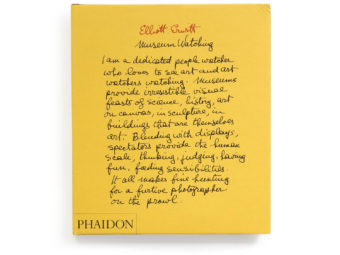 Elliott Erwitt
Museum Watching
I am a dedicated people watcher
who loves to see art and art
watchers watching. Museums
provide irresistible visual
feasts of science, history, art
on canvas, in sculpture, in
buildings that are themselves
art. Blending with displays,
spectators provide the human
scale, thinking, judging, having
fun, feeding sensibilities.
It all makes fine hunting
for a furtive photographer
on the prowl
PHAIDON